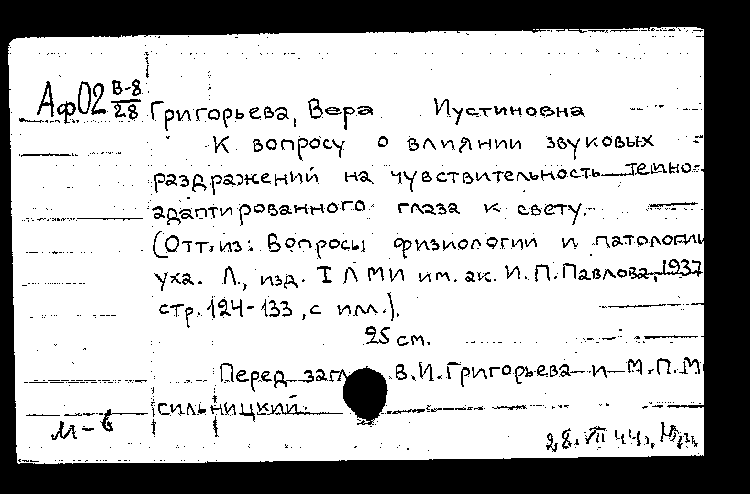 Аф02 В-8/28 Григорьева, Вера Иустиновна
К вопросу о влиянии звуковых
раздражений на чувствительность темно-
адаптированного глаза к свету.
(Отт. из: Вопросы физиологии и патологии
уха. Л., изд. I ЛМИ им. ак. И. П. Павлова, 1937
стр. 124-133, с илл.).
25 см.
Перед загл. В. И. Григорьева и М. П. М
сильницкий.
М-6
28. VII 44.